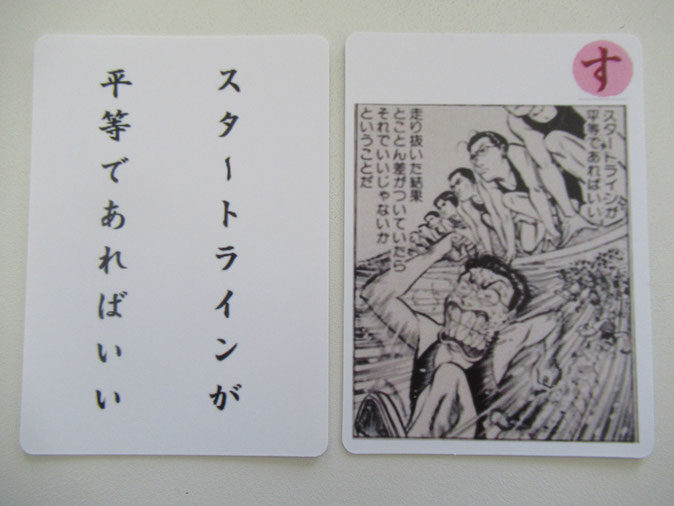 スタートラインが
平等であればいい
す
スタートラインが
平等であればいい
走り抜いた結果
とことん差がついていたら
それでいいじゃないか
ということだ